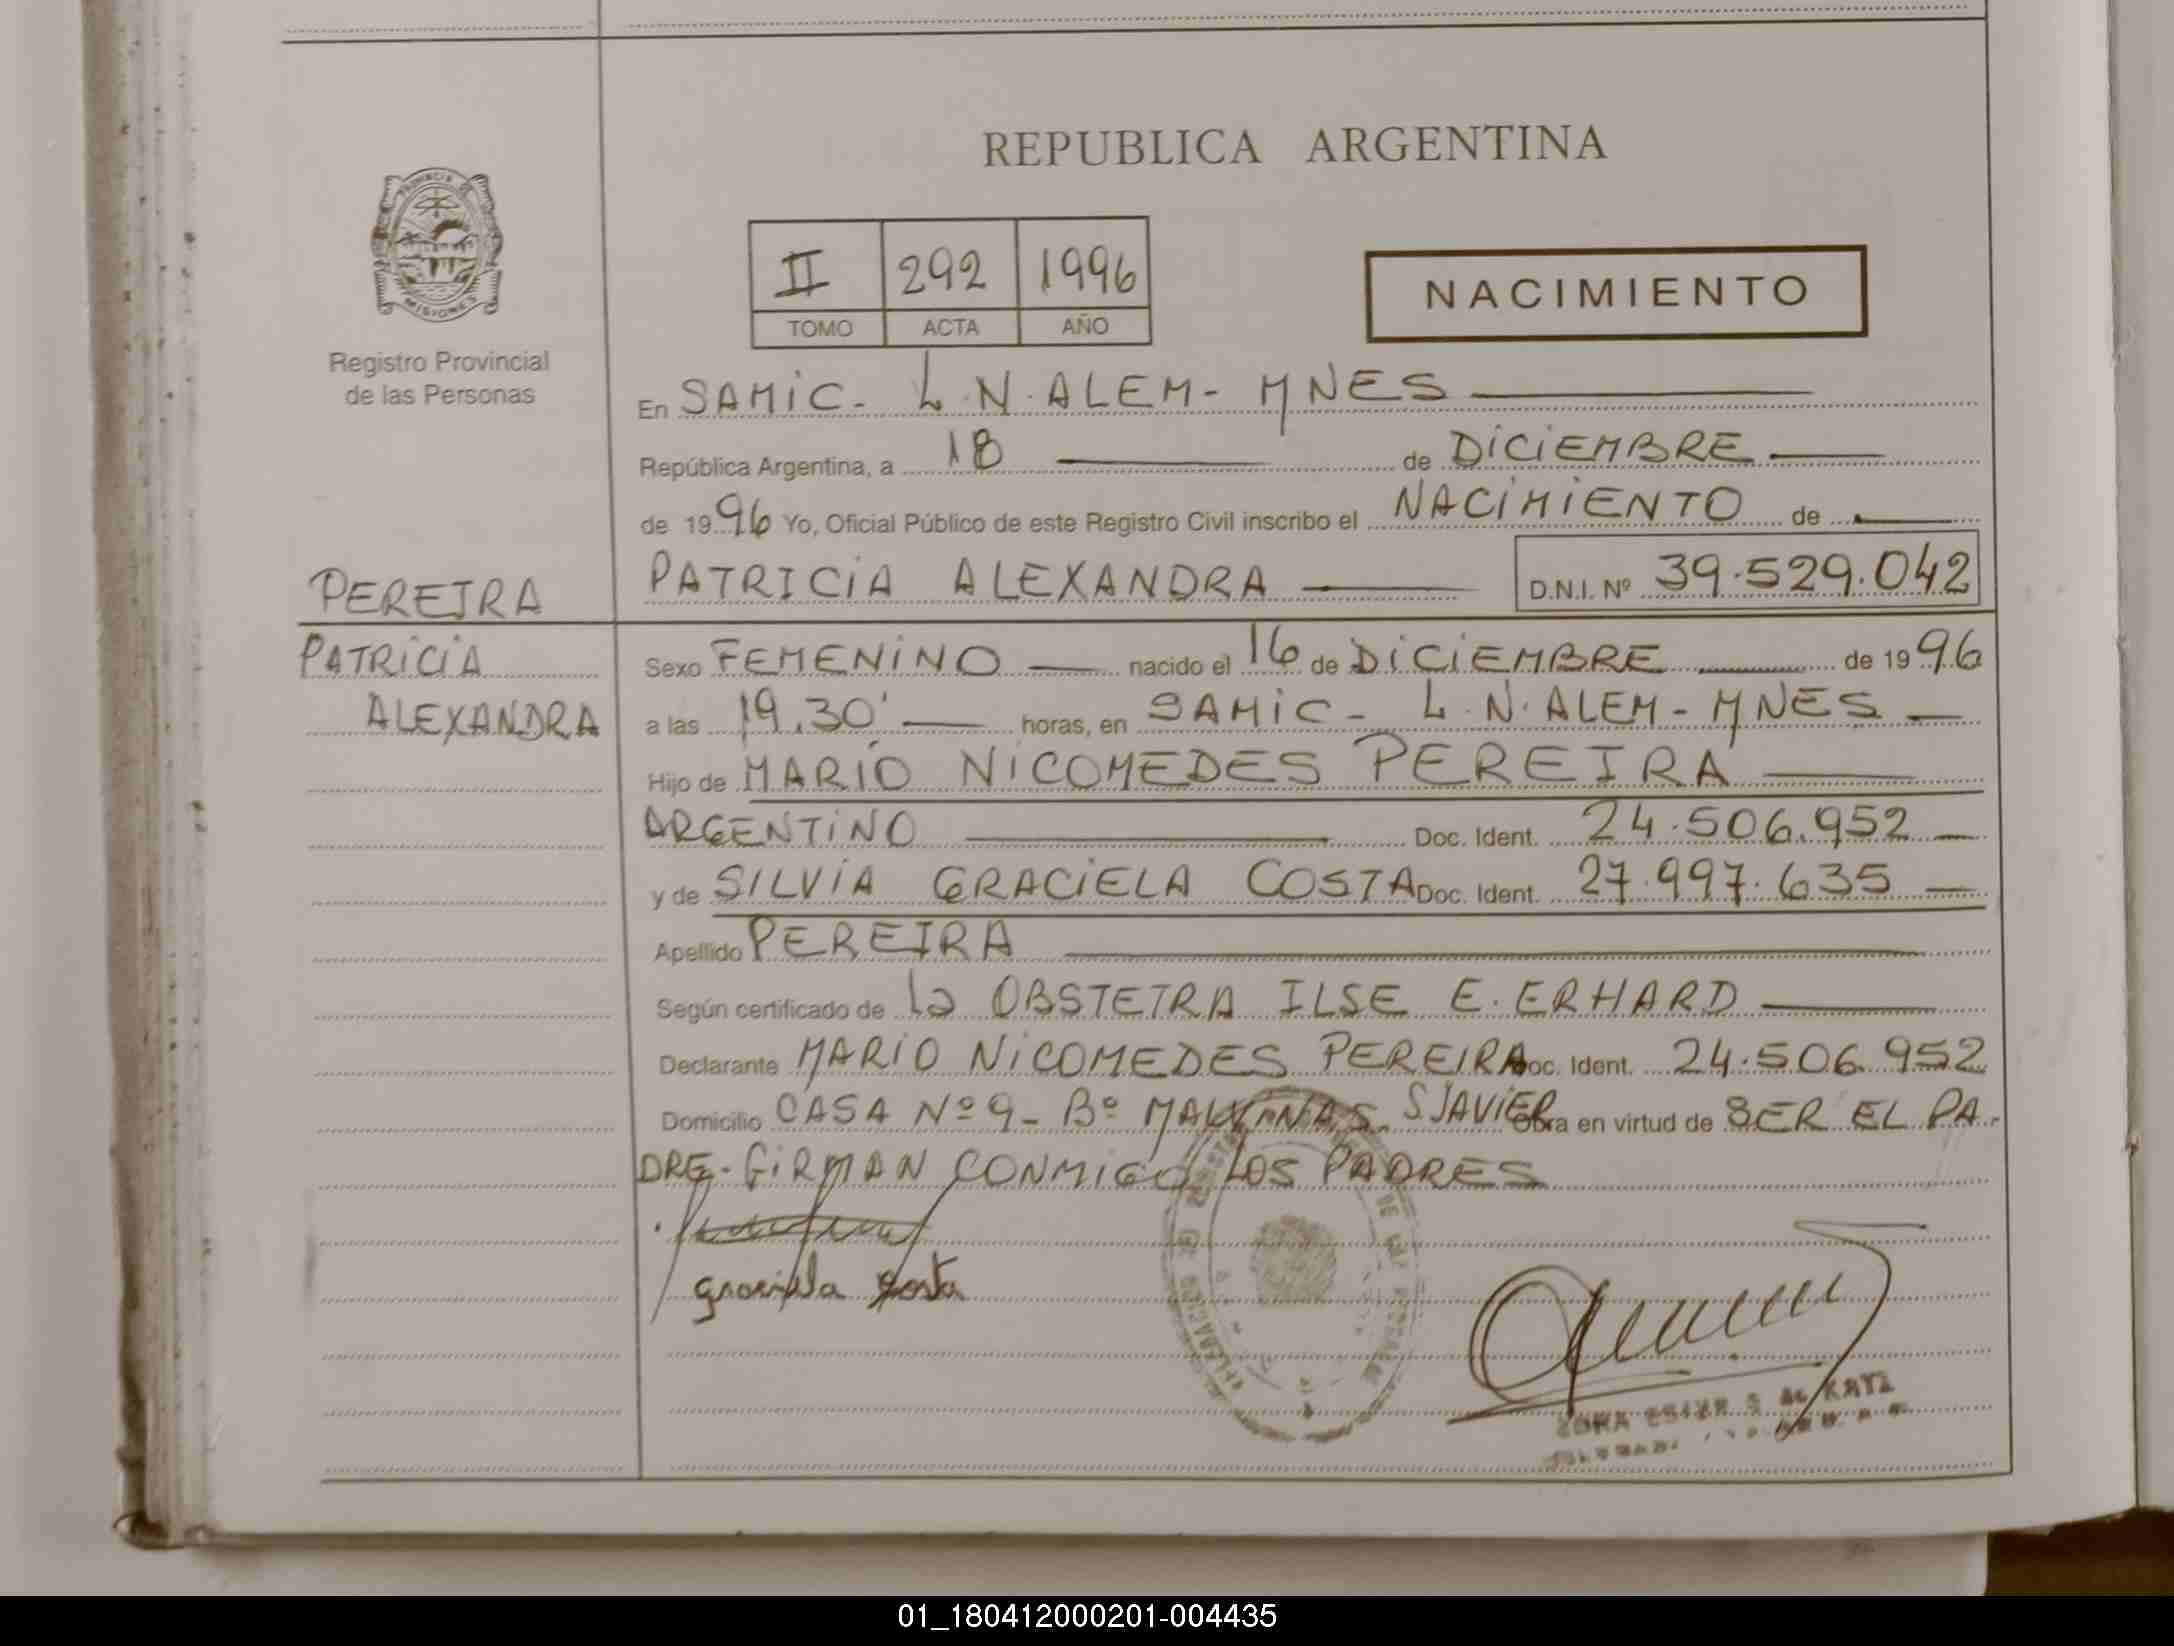 REPUBLICA ARGENTINA
PROVINCIA DE
MISIONES
Registro Provincial
de las Personas
II 292 1996
TOMO ACTA AÑO
NACIMIENTO
En SAMIC - L.N. ALEM - MNES
República Argentina, a 18 de DICIEMBRE
de 1996 Yo, Oficial Público de este Registro Civil inscribo el NACIMIENTO de
PEREIRA
PATRICIA ALEXANDRA D.N.I. Nº 39.529.042
PATRICIA
ALEXANDRA
Sexo FEMENINO nacido el 16 de DICIEMBRE de 1996
a las 19.30' horas, en SAMIC - L.N. ALEM - MNES
Hijo de MARIO NICOMEDES PEREIRA
ARGENTINO Doc. Ident. 24.506.952
y de SILVIA GRACIELA COSTA Doc. Ident. 27.997.635
Apellido PEREIRA
Según certificado de la OBSTETRA ILSE E. ERHARD
Declarante MARIO NICOMEDES PEREIRA Doc. Ident. 24.506.952
Domicilio CASA Nº 9 - Bº MALVINAS. S JAVIER Obra en virtud de SER EL PA-
DRE - FIRMAN CONMIGO LOS PADRES
graciela costa
01_180412000201-004435